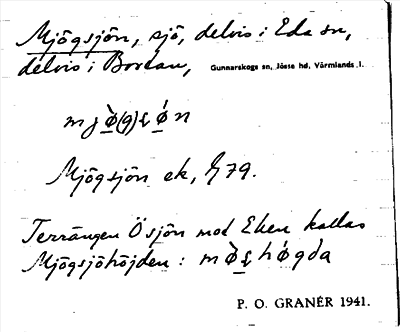 Mjögsjön, sjö, delvis i Eda sn,
delvis i Bortan, Gunnarskogs sn, Jösse hd, Värmlands l.
Mjögsjön ek, G 79.
Terrängen Ö sjön mot Eken kallas
Mjögsjöhöjden:
P. O. GRANÉR 1941.